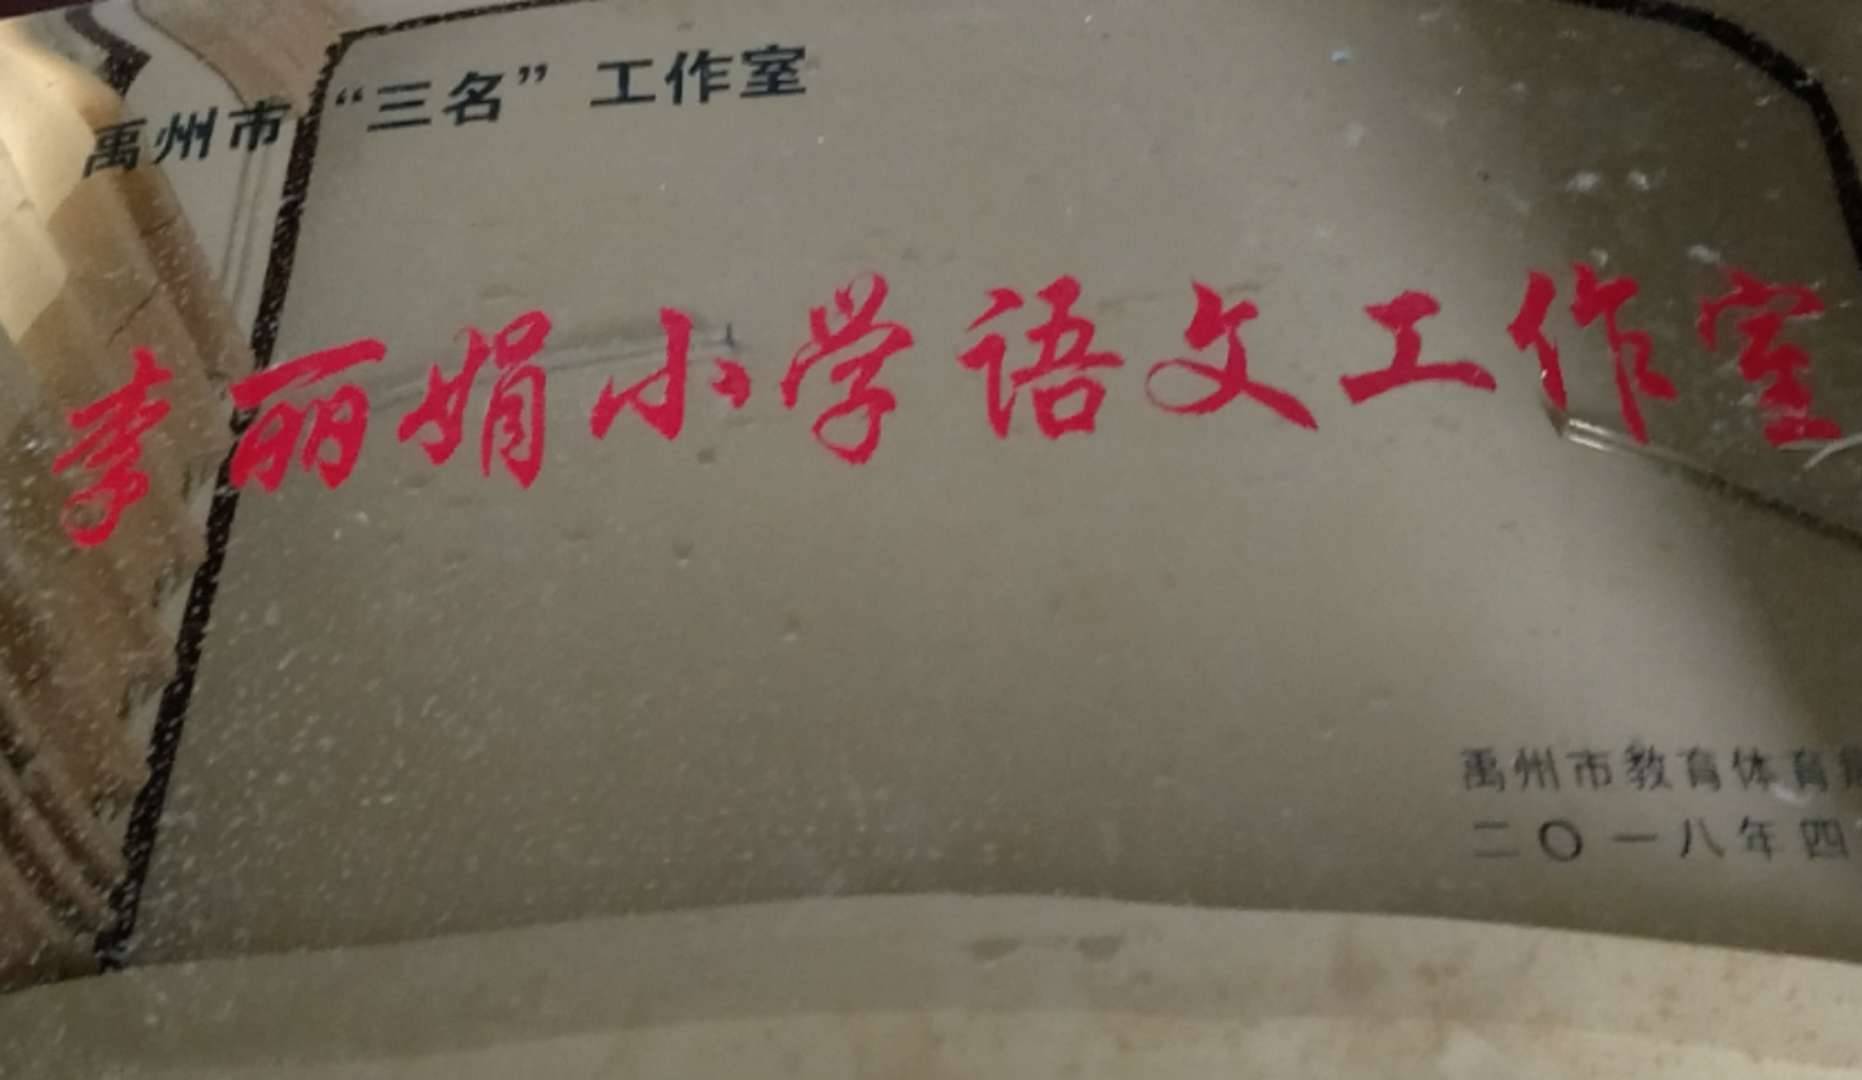 禹州市“三名”工作室
李丽娟小学语文工作室
禹州市教育体育局
二〇一八年四